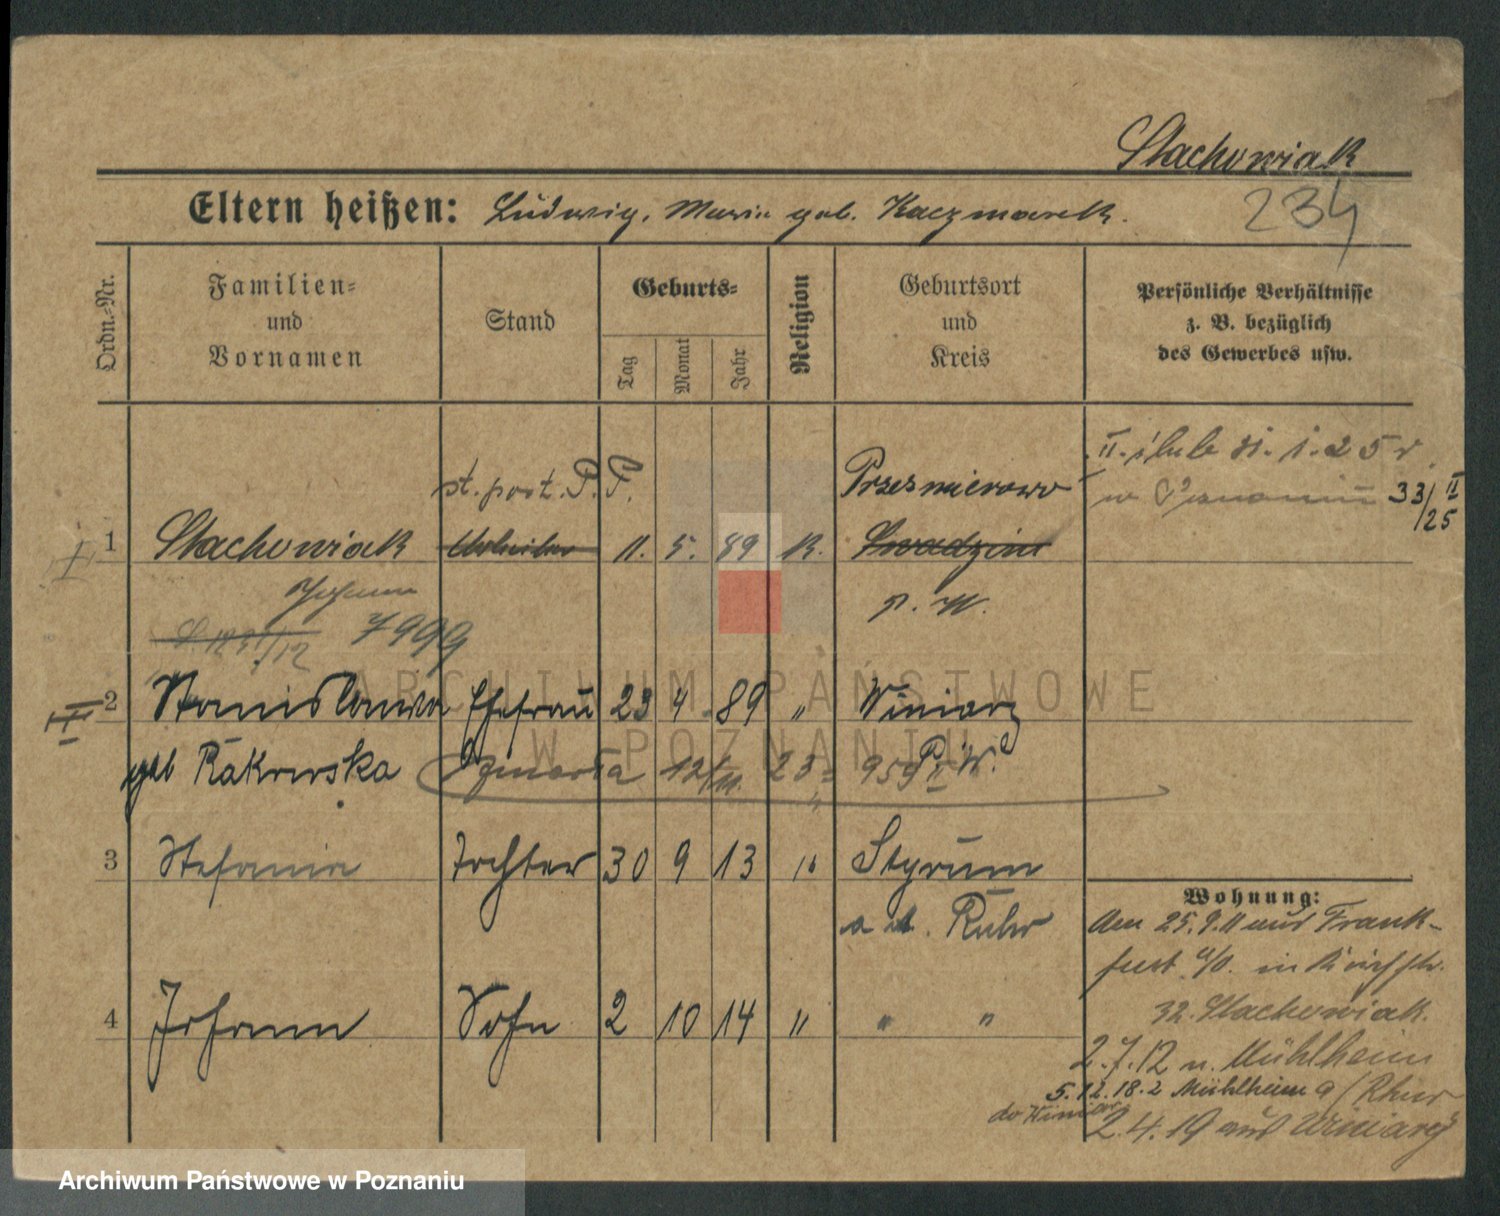 Stachowiak
Eltern heißen: Ludwig, Maria geb. Kaczmarek.
234
Ordn.-Nr.
Familien-
und
Vornamen
Stand
Geburts-
Tag
Monat
Jahr
Religion
Geburtsort
und
Kreis
Persönliche Verhältnisse
z. B. bezüglich
des Gewerbes usw.
II. ślub 31. 1. 25 r.
w Poznaniu 33/II
/25
st. post. P. P.
Przezmierowo
I 1 Stachowiak Arbeiter 11. 5. 89 K. Swadzim
Johann
p. W.
7999
II 2 Stanislawa Ehefrau 23 4. 89 " Winiary
geb Rakowska
zmarła 12/11. 23 959 P. W.
3 Stefania Tochter 30 9 13 " Styrum
a d. Ruhr
4 Johann Sohn 2 10 14 " " "
Wohnung:
Am 25. 9. 11 aus Frank-
furt a/O. in Kirchstr.
32. Stachowiak.
2. 7. 12 n. Mühlheim
5. 12. 18. z Mühlheim a/Rhur
do Winiar
2. 4. 19 aus Winiary
ARCHIWUM PAŃSTWOWE
W POZNANIU
Archiwum Państwowe w Poznaniu